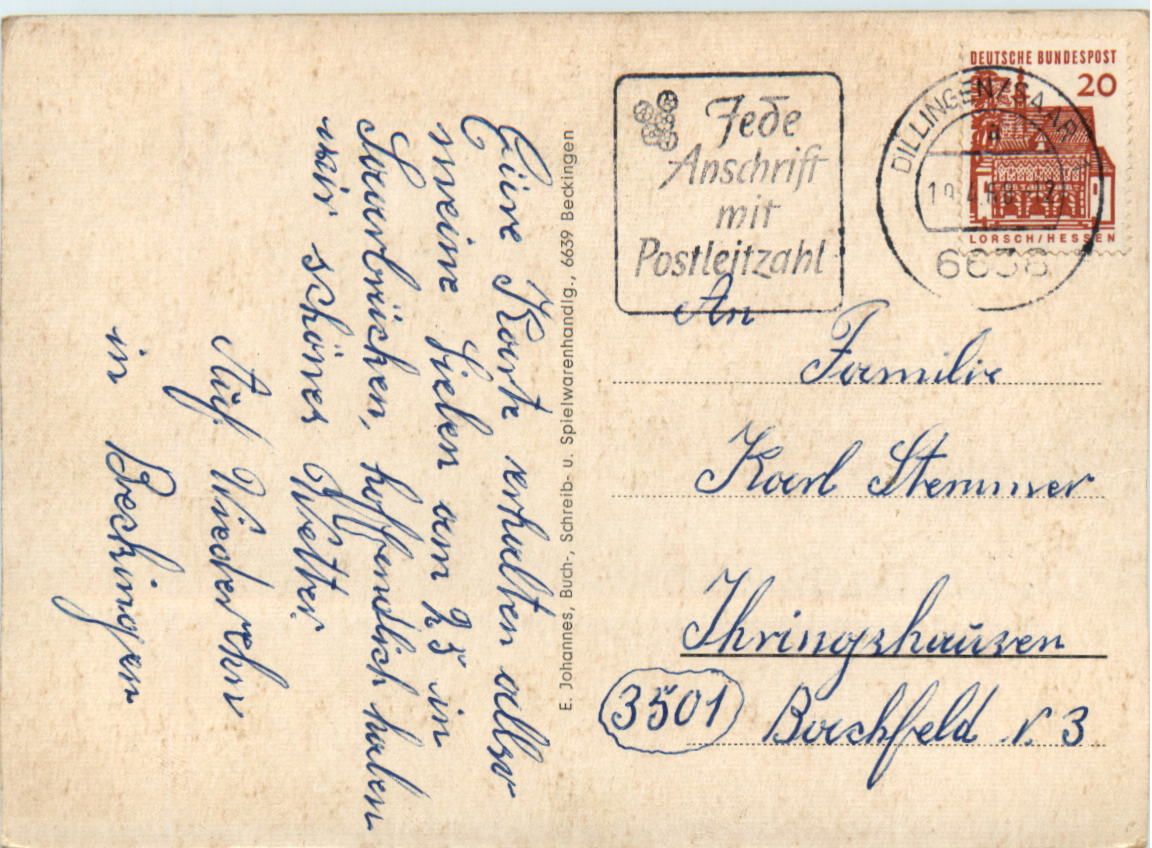 Eure Karte erhalten allso
meine Lieben am 25 in
Saarbrücken, hoffendlich haben
wir schönes Wetter.
Auf Wiedersehn
in Beckingen
E. Johannes, Buch-, Schreib- u. Spielwarenhandlg., 6639 Beckingen
Jede
Anschrift
mit
Postleitzahl
DEUTSCHE BUNDESPOST
20
LORSCH/HESSEN
DILLINGEN/SAAR
a
6638
An
Familie
Karl Stemmer
Ihringshausen
3501 Bachfeld N. 3